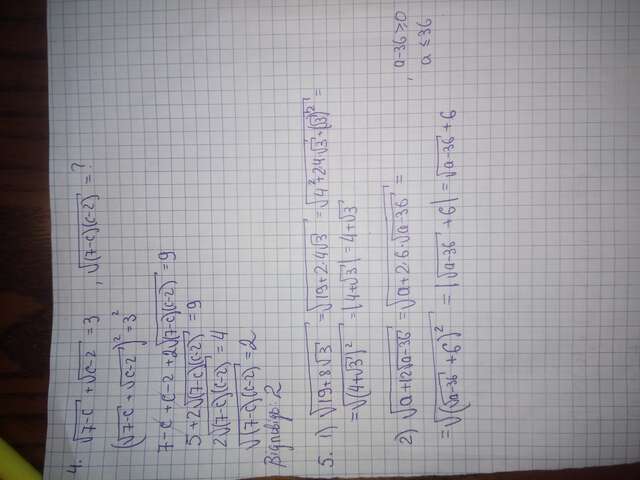 4. √7-c + √c-2 = 3 , √(7-c)(c-2) = ?
(√7-c + √c-2)² = 3²
7-c + c-2 + 2√(7-c)(c-2) = 9
5 + 2√(7-c)(c-2) = 9
2√(7-c)(c-2) = 4
√(7-c)(c-2) = 2
Відповідь: 2
5. 1) √19+8√3 = √19+2·4√3 = √4²+2·4√3+(√3)² =
= √(4+√3)² = |4+√3| = 4+√3
2) √a+12√a-36 = √a+2·6·√a-36 = , a-36≥0
a≤36
= √(√a-36 + 6)² = |√a-36 + 6| = √a-36 + 6